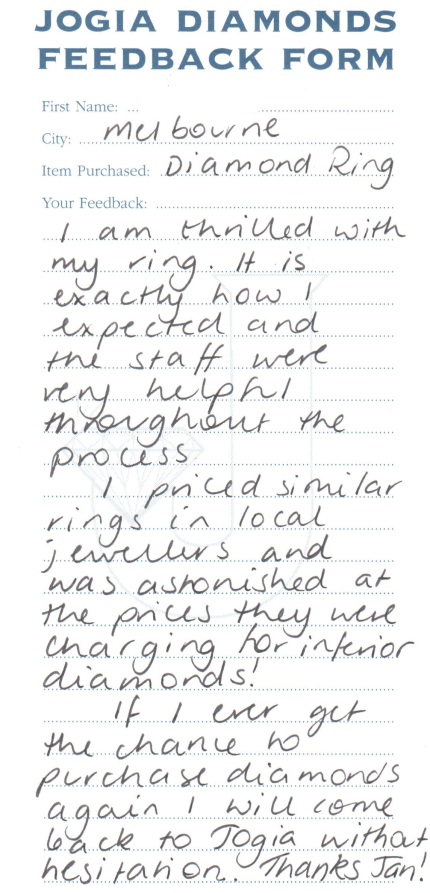 JOGIA DIAMONDS
FEEDBACK FORM
First Name: ...
City: Melbourne
Item Purchased: Diamond Ring
Your Feedback:
I am thrilled with
my ring. It is
exactly how I
expected and
the staff were
very helpful
throughout the
process
I priced similar
rings in local
jewellers and
was astonished at
the prices they were
charging for inferior
diamonds!
If I ever get
the chance to
purchase diamonds
again I will come
back to Jogia without
hesitation. Thanks Jan!